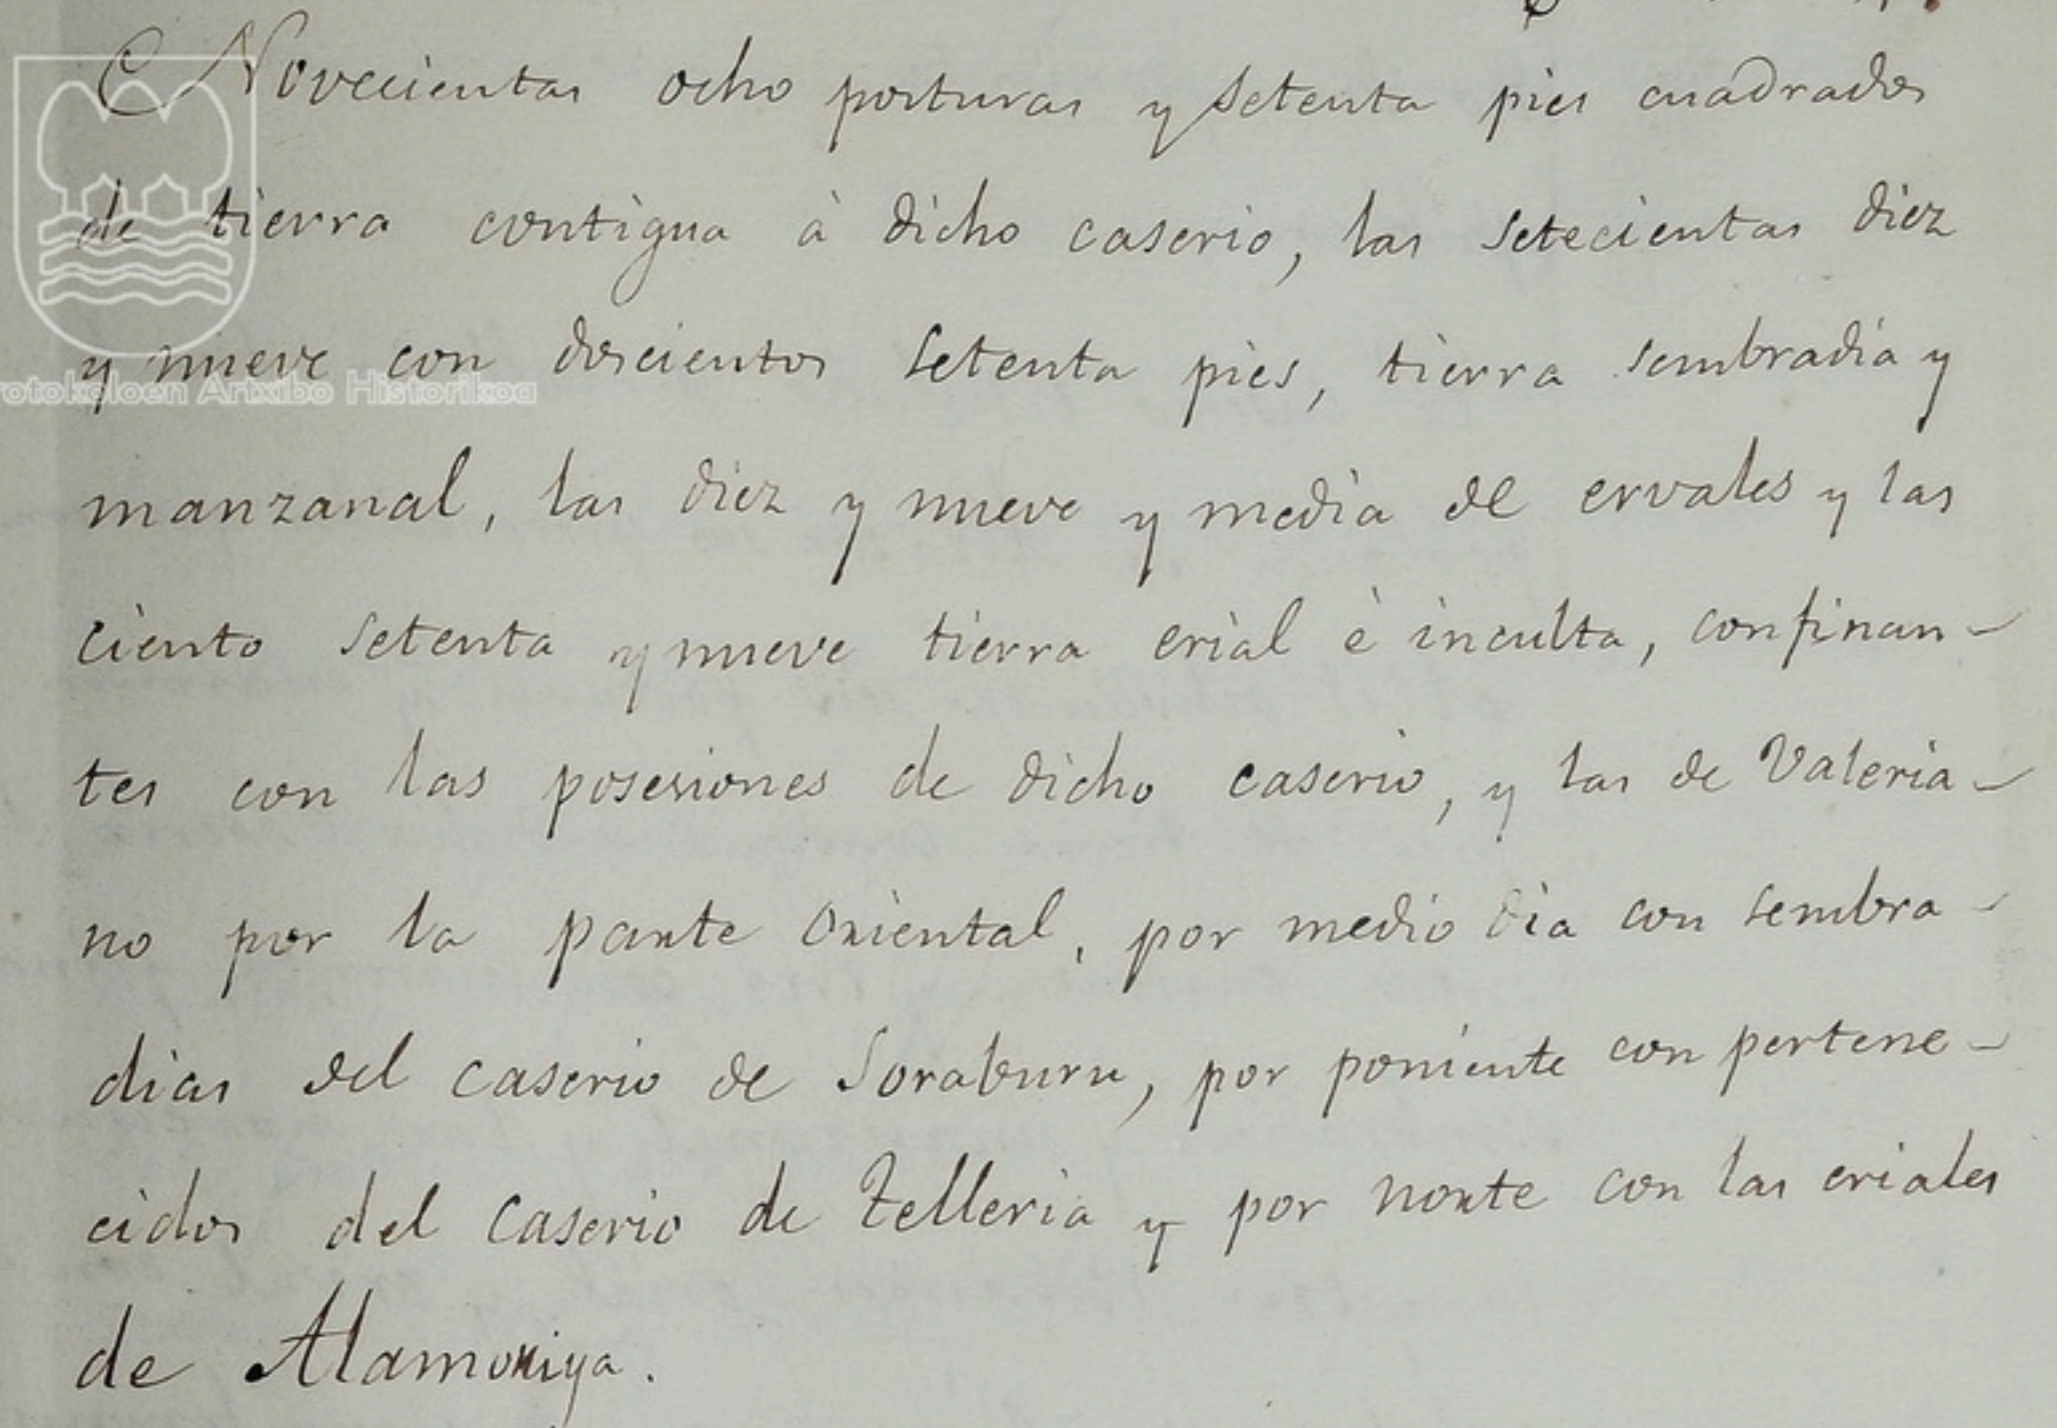 Novecientas ocho posturas y setenta pies cuadrados
de tierra contigua à dicho caserio, las setecientas diez
y nueve con doscientos setenta pies, tierra sembradia y
otokoloen Artxibo Historikoa
manzanal, las diez y nueve y media de ervales y las
ciento setenta y nueve tierra erial è inculta, confinan-
tes con las posesiones de dicho caserio, y las de Valeria-
no por la parte oriental, por medio dia con sembra-
dias del caserio de Soraburu, por poniente con pertene-
cidos del caserio de Telleria y por norte con las eriales
de Alamoriya.